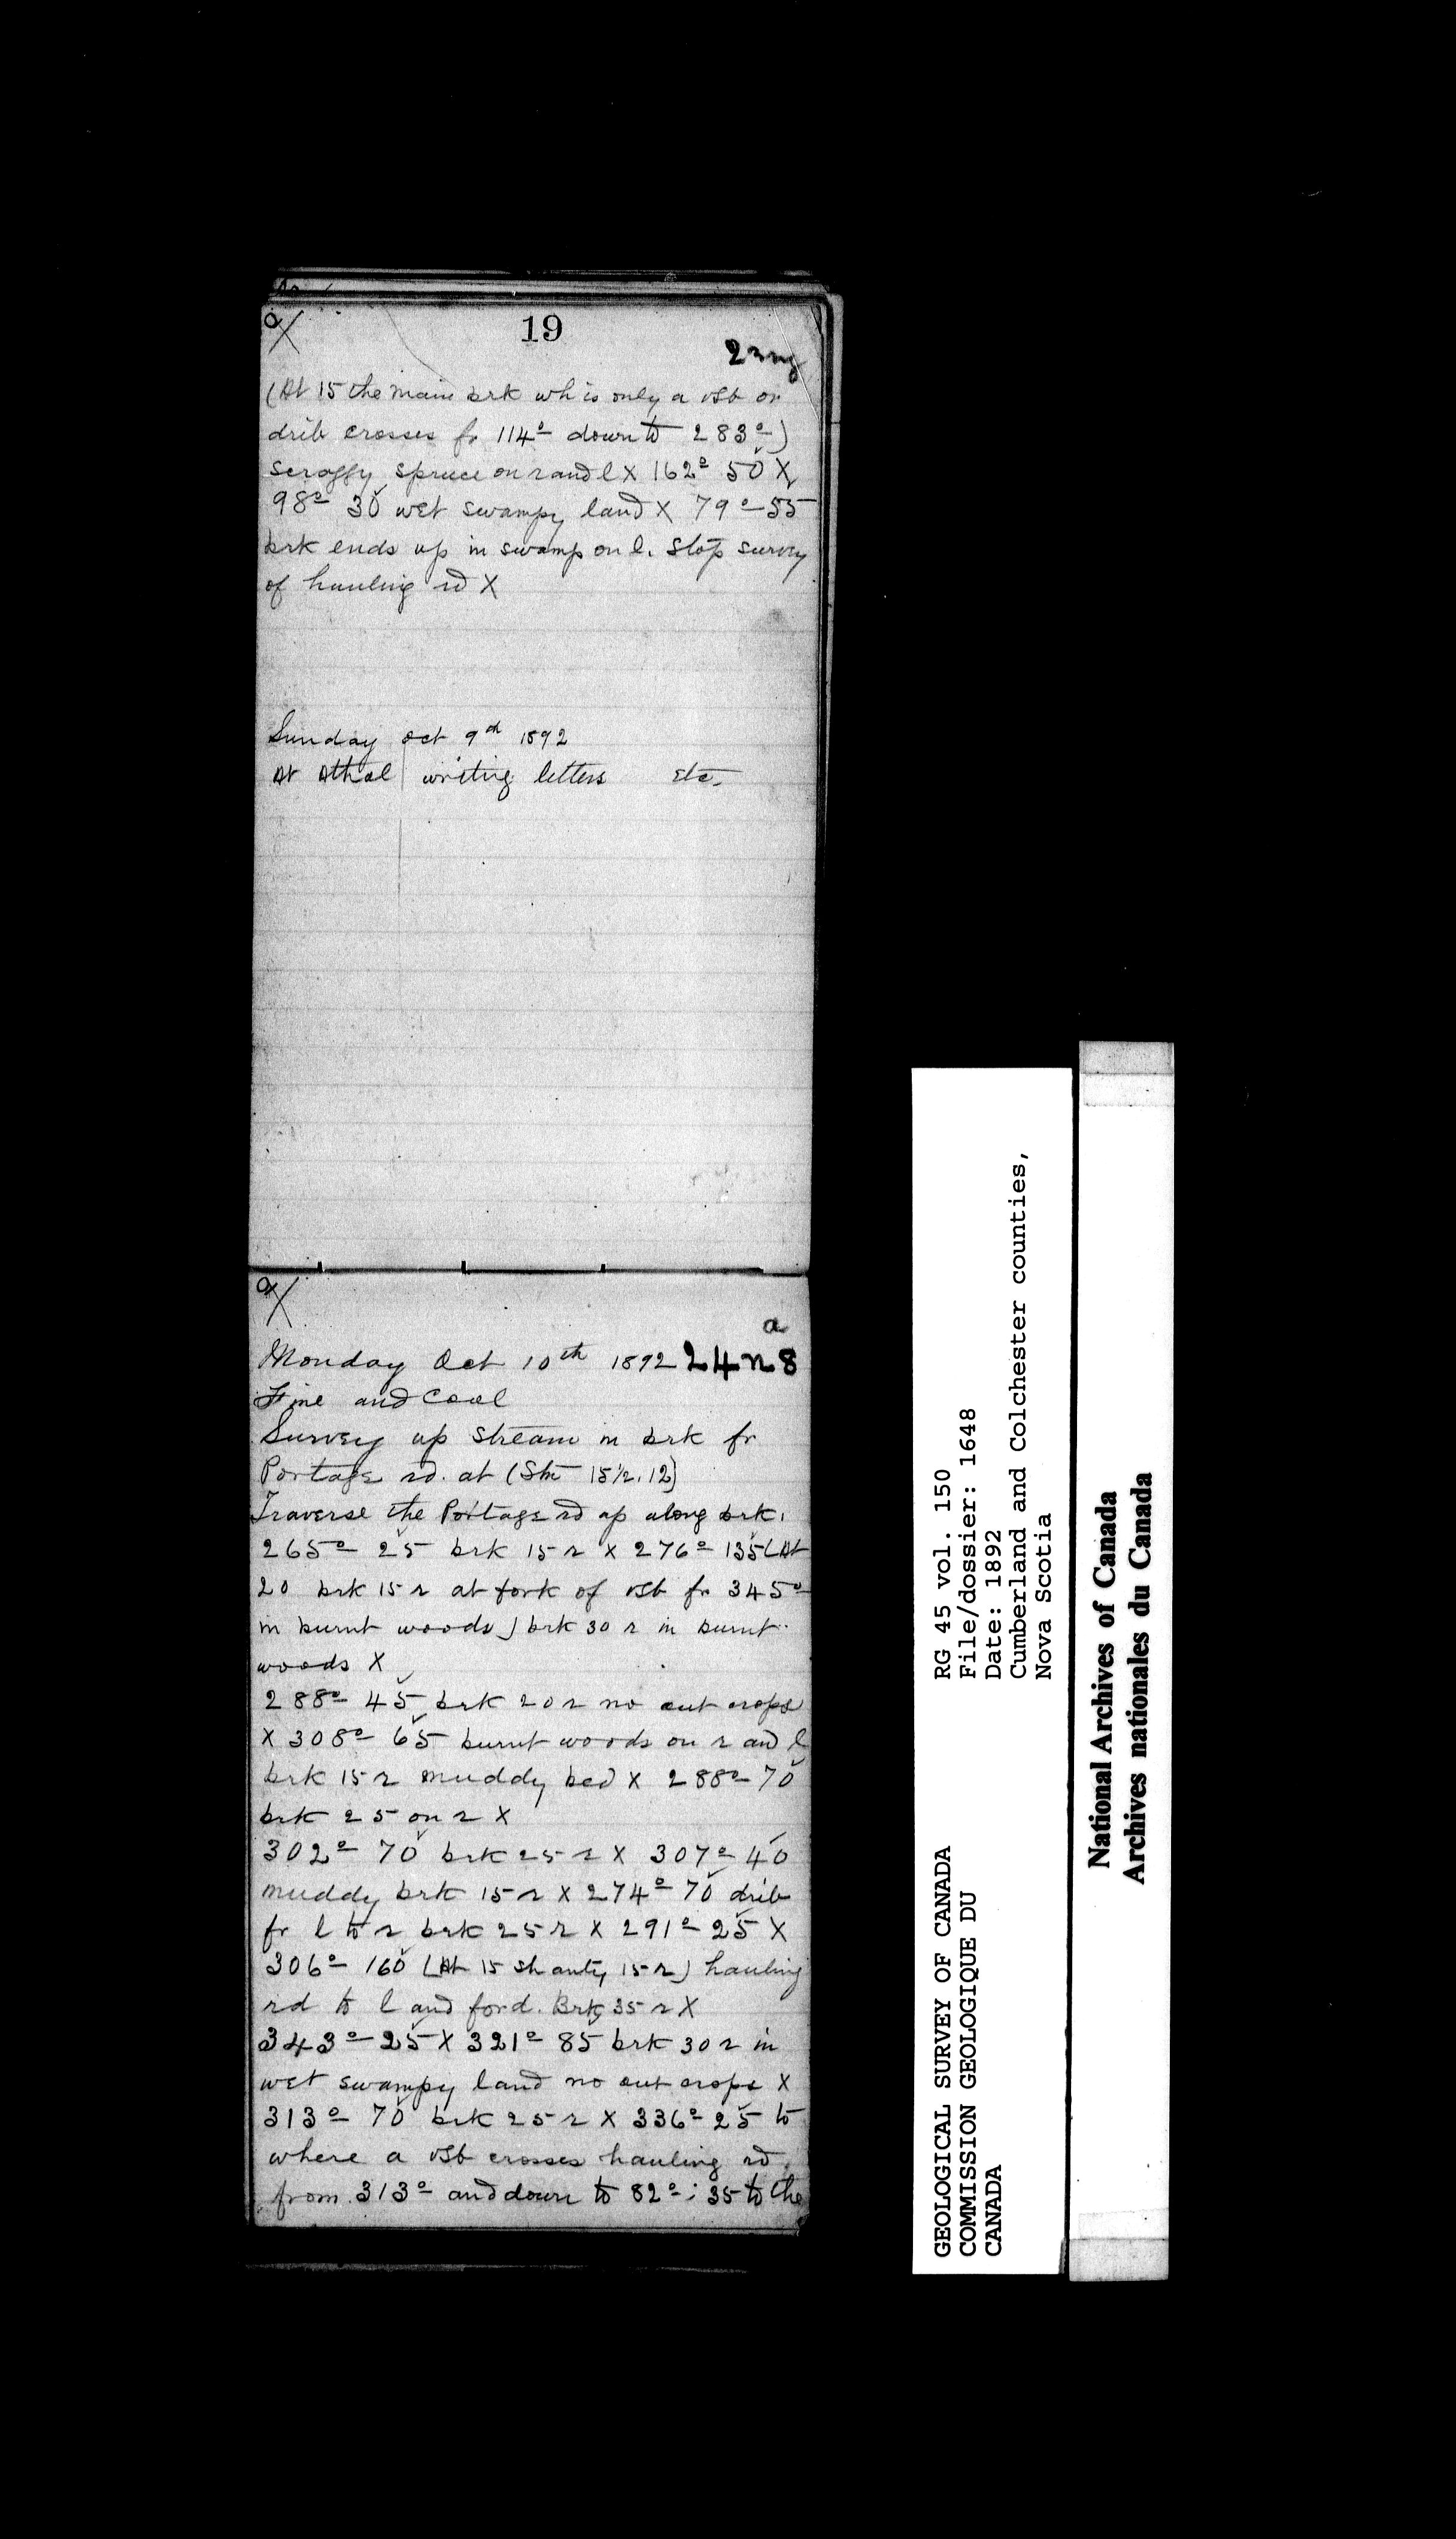 19
(At 15 the main brk wh is only a vsb or
drib crosses fr 114° down to 283°)
scraggy spruce on r and l X 162° 50 X
98° 30 wet swampy land X 79° 55
brk ends up in swamp on l. Stop survey
of hauling rd X
Sunday Oct 9th 1892
At Athol writing letters etc.
a
Monday Oct 10th 1892 24 n 8
Fine and Cool
Survey up stream in brk fr
Portage rd. at (Stn 15½.12)
Traverse the Portage rd up along brk.
265° 25 brk 15 r X 276° 135 (At
20 brk 15 r at fork of vsb fr 345°
in burnt woods) brk 30 r in burnt
woods X
288° 45 brk 20 r no out crops
X 308° 65 burnt woods on r and l
brk 15 r muddy bed X 288° 70
brk 25 on r X
302° 70 brk 25 r X 307° 40
muddy brk 15 r X 274° 70 drib
fr l to r brk 25 r X 291° 25 X
306° 160 (At 15 shanty 15 r) hauling
rd to l and ford. Brk 35 r X
343° 25 X 321° 85 brk 30 r in
wet swampy land no out crops X
313° 70 brk 25 r X 336° 25 to
where a vsb crosses hauling rd
from 313° and down to 82°; 35 to the
GEOLOGICAL SURVEY OF CANADA
COMMISSION GEOLOGIQUE DU
CANADA
RG 45 vol. 150
File/dossier: 1648
Date: 1892
Cumberland and Colchester counties,
Nova Scotia
National Archives of Canada
Archives nationales du Canada